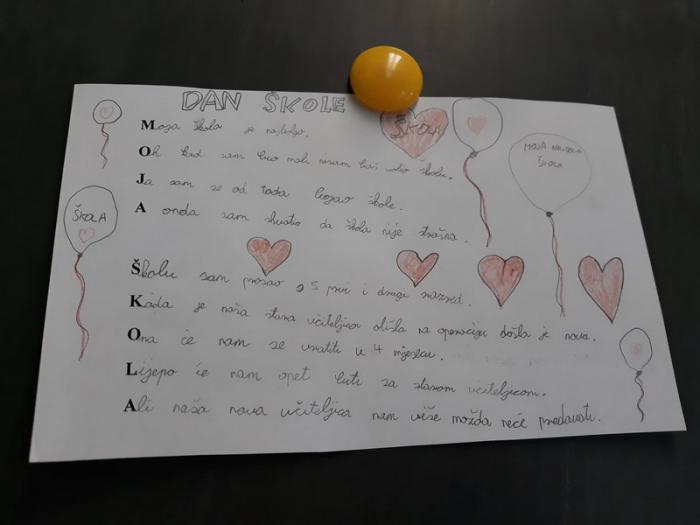 DAN ŠKOLE
ŠKOLA
MOJA
ŠKOLA
ŠKOLA
Moja škola je najbolja.
Oh kad sam bio mali nisam baš volio školu.
Ja sam se od tada bojao škole.
A onda sam shvatio da škola nije strašna.
Školu sam pošao s 5 prvi i drugi razred.
Kada je naša stara učiteljica otišla na operaciju došla je nova.
Ona će nam se vratiti u 4 mjesecu.
Lijepo će nam opet biti sa starom učiteljicom.
Ali naša nova učiteljica nam više možda neće predavati.